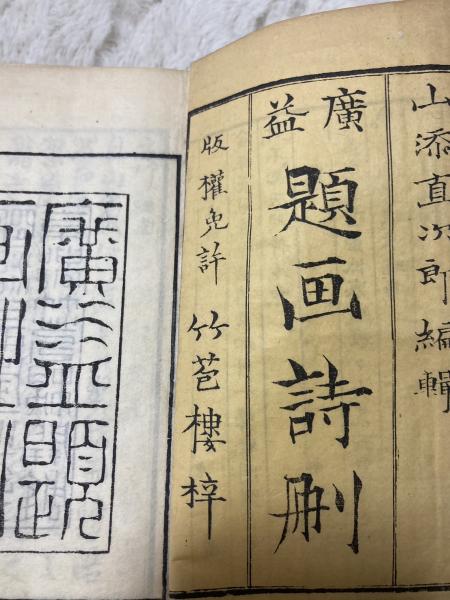 山添直次郎編輯
廣益
題画詩刪
版權免許
竹苞樓梓
廣益題